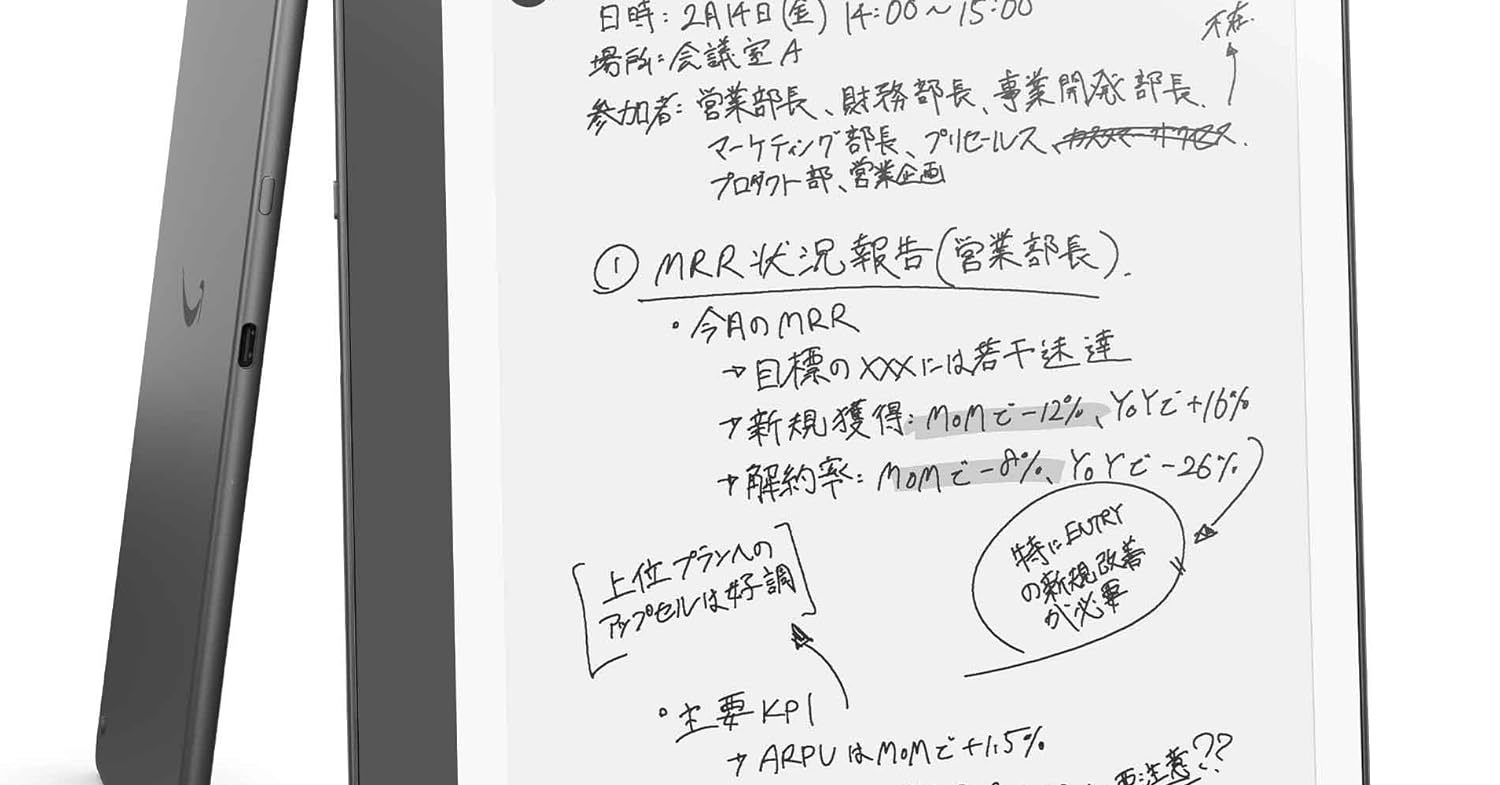 日時：2月14日(金) 14:00～15:00
不在
場所：会議室A
参加者：営業部長、財務部長、事業開発部長、
マーケティング部長、プリセールス、
プロダクト部、営業企画
① MRR状況報告(営業部長).
・今月のMRR
→目標のXXXには若干未達
→新規獲得：MoMで-12%、YoYで+16%
→解約率：MoMで-8%、YoYで-26%
特にENTRY
の新規改善
が必要
[上位プランへの
アップセルは好調]
・主要KPI
→ARPUはMoMで+1.5%
要注意??